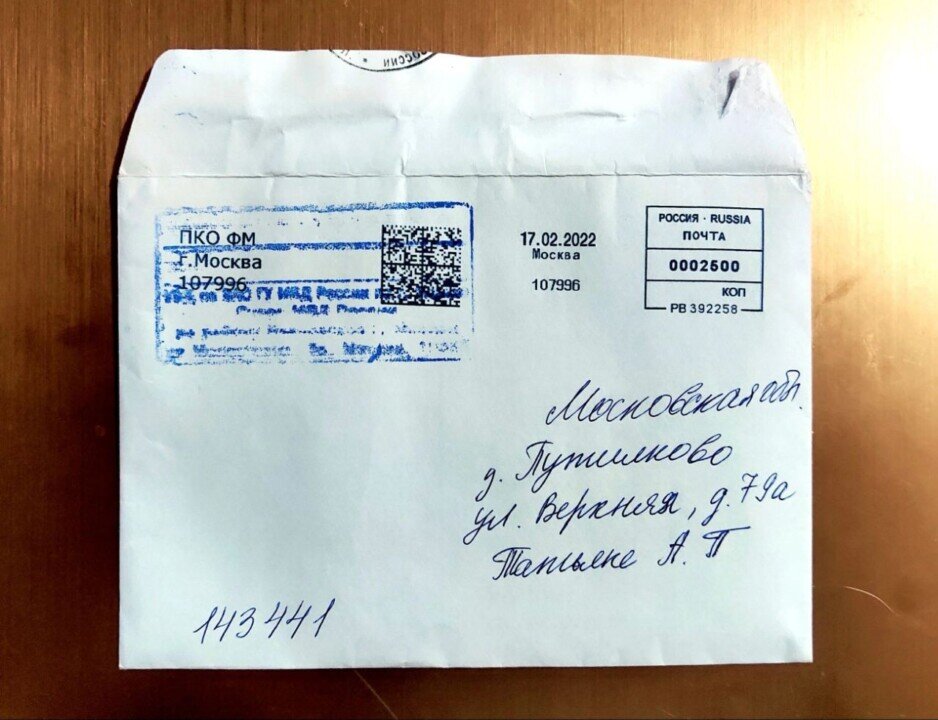 РОССИИ
ПКО ФМ
г.Москва
107996
ГУ МВД России
17.02.2022
Москва
107996
РОССИЯ · RUSSIA
ПОЧТА
0002500
КОП
РВ 392258
Московская обл.
д. Путилково
ул. Верхняя, д. 79а
Татьяне А. П
143441